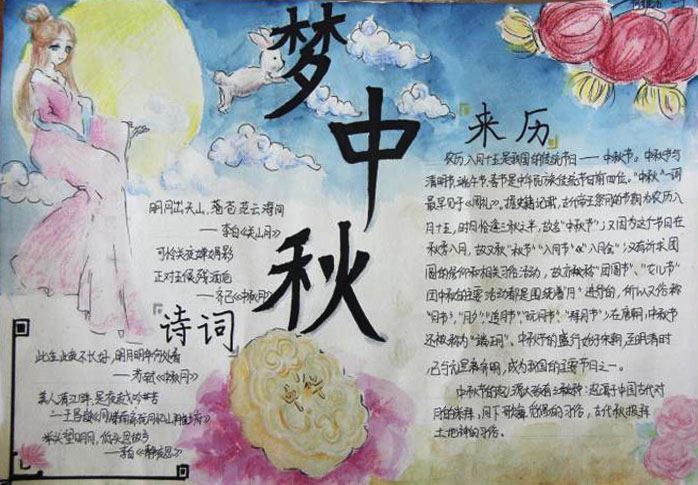 梦中秋
诗词
明月出天山，苍茫云海间
——李白《关山月》
可怜关夜婵娟影
正对五侯残酒卮
——齐己《中秋月》
此生此夜不长好，明月明年何处看
——苏轼《中秋月》
美人清江畔，是夜越吟苦
举头望明月，低头思故乡
——李白《静夜思》
来历
农历八月十五是我国的传统节日——中秋节。中秋节与
清明节、端午节、春节是中华民族传统节日前四位。"中秋"一词
最早见于《周礼》，据史籍记载，古代帝王祭月的节期为农历八
月十五，时月恰逢三秋之半，故名"中秋节"；又因为这个节日在
秋季八月，故又称"秋节""八月节""八月会"；又有祈求团
圆的信仰和相关习俗活动，故亦称"团圆节"、"女儿节"
因中秋的主要活动都是围绕着"月"进行的，所以又俗称
"月节"、"月夕"、"追月节"、"玩月节"、"拜月节"；在唐朝，中秋节
还被称为"端正月"。中秋节的盛行始于宋朝，至明清时
已与元旦齐名，成为我国的主要节日之一。
中秋节的起源大致有三种：起源于中国古代对
月的崇拜、月下歌舞觅偶的习俗，古代秋报拜
土地神的习俗。